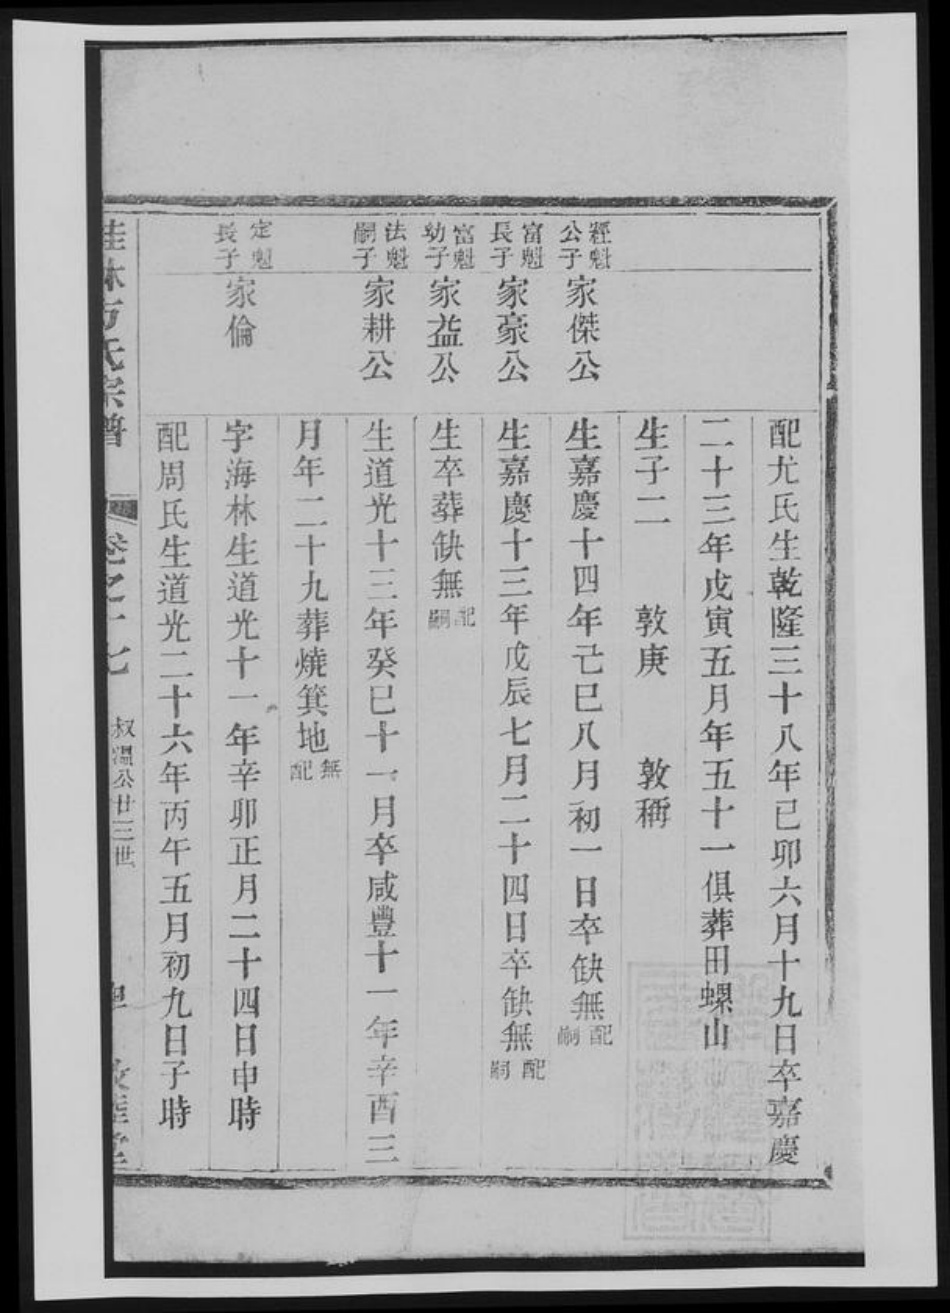 配尤氏生乾隆三十八年已卯六月十九日卒嘉慶
二十三年戊寅五月年五十一俱葬田螺山
生子二 敦庚 敦稱
經魁公子 家傑公 生嘉慶十四年己巳八月初一日卒缺無配嗣
富魁長子 家豪公 生嘉慶十三年戊辰七月二十四日卒缺無配嗣
富魁幼子 家益公 生卒葬缺無配嗣
法魁嗣子 家耕公 生道光十三年癸巳十一月卒咸豐十一年辛酉三
月年二十九葬燒箕地無配
定魁長子 家倫 字海林生道光十一年辛卯正月二十四日申時
配周氏生道光二十六年丙午五月初九日子時
桂林方氏宗譜 卷之十七 叔淵公廿三世